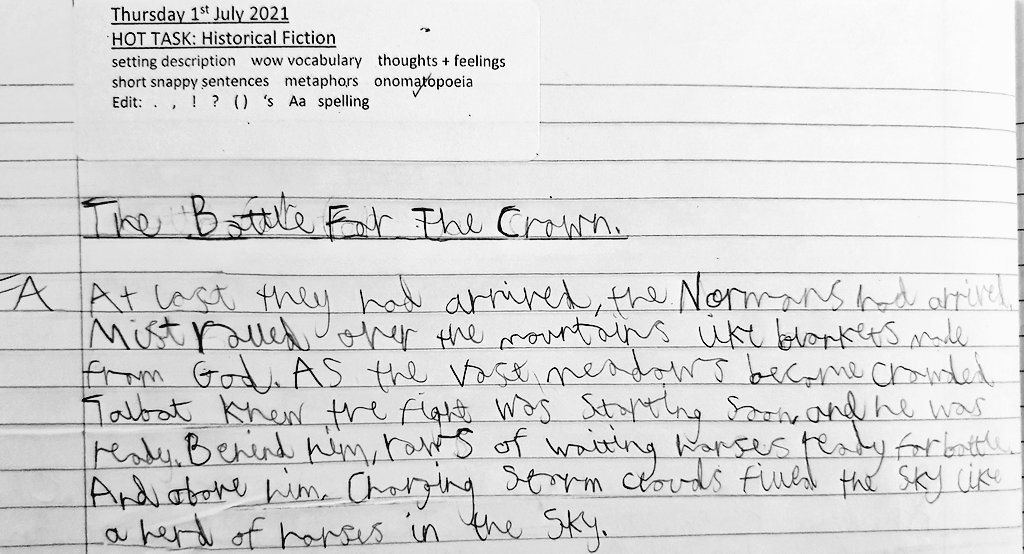 Thursday 1st July 2021
HOT TASK: Historical Fiction
setting description wow vocabulary thoughts + feelings
short snappy sentences metaphors onomatopoeia
Edit: . , ! ? ( ) 's Aa spelling
The Battle For The Crown.
FA At last they had arrived, the Normans had arrived.
Mist rolled over the mountains like blankets made
from God. As the vast, meadows become crowded
Talbot knew the fight was starting soon, and he was
ready. Behind him, rows of waiting horses ready for battle.
And above him. Charging storm clouds filled the sky like
a herd of horses in the sky.